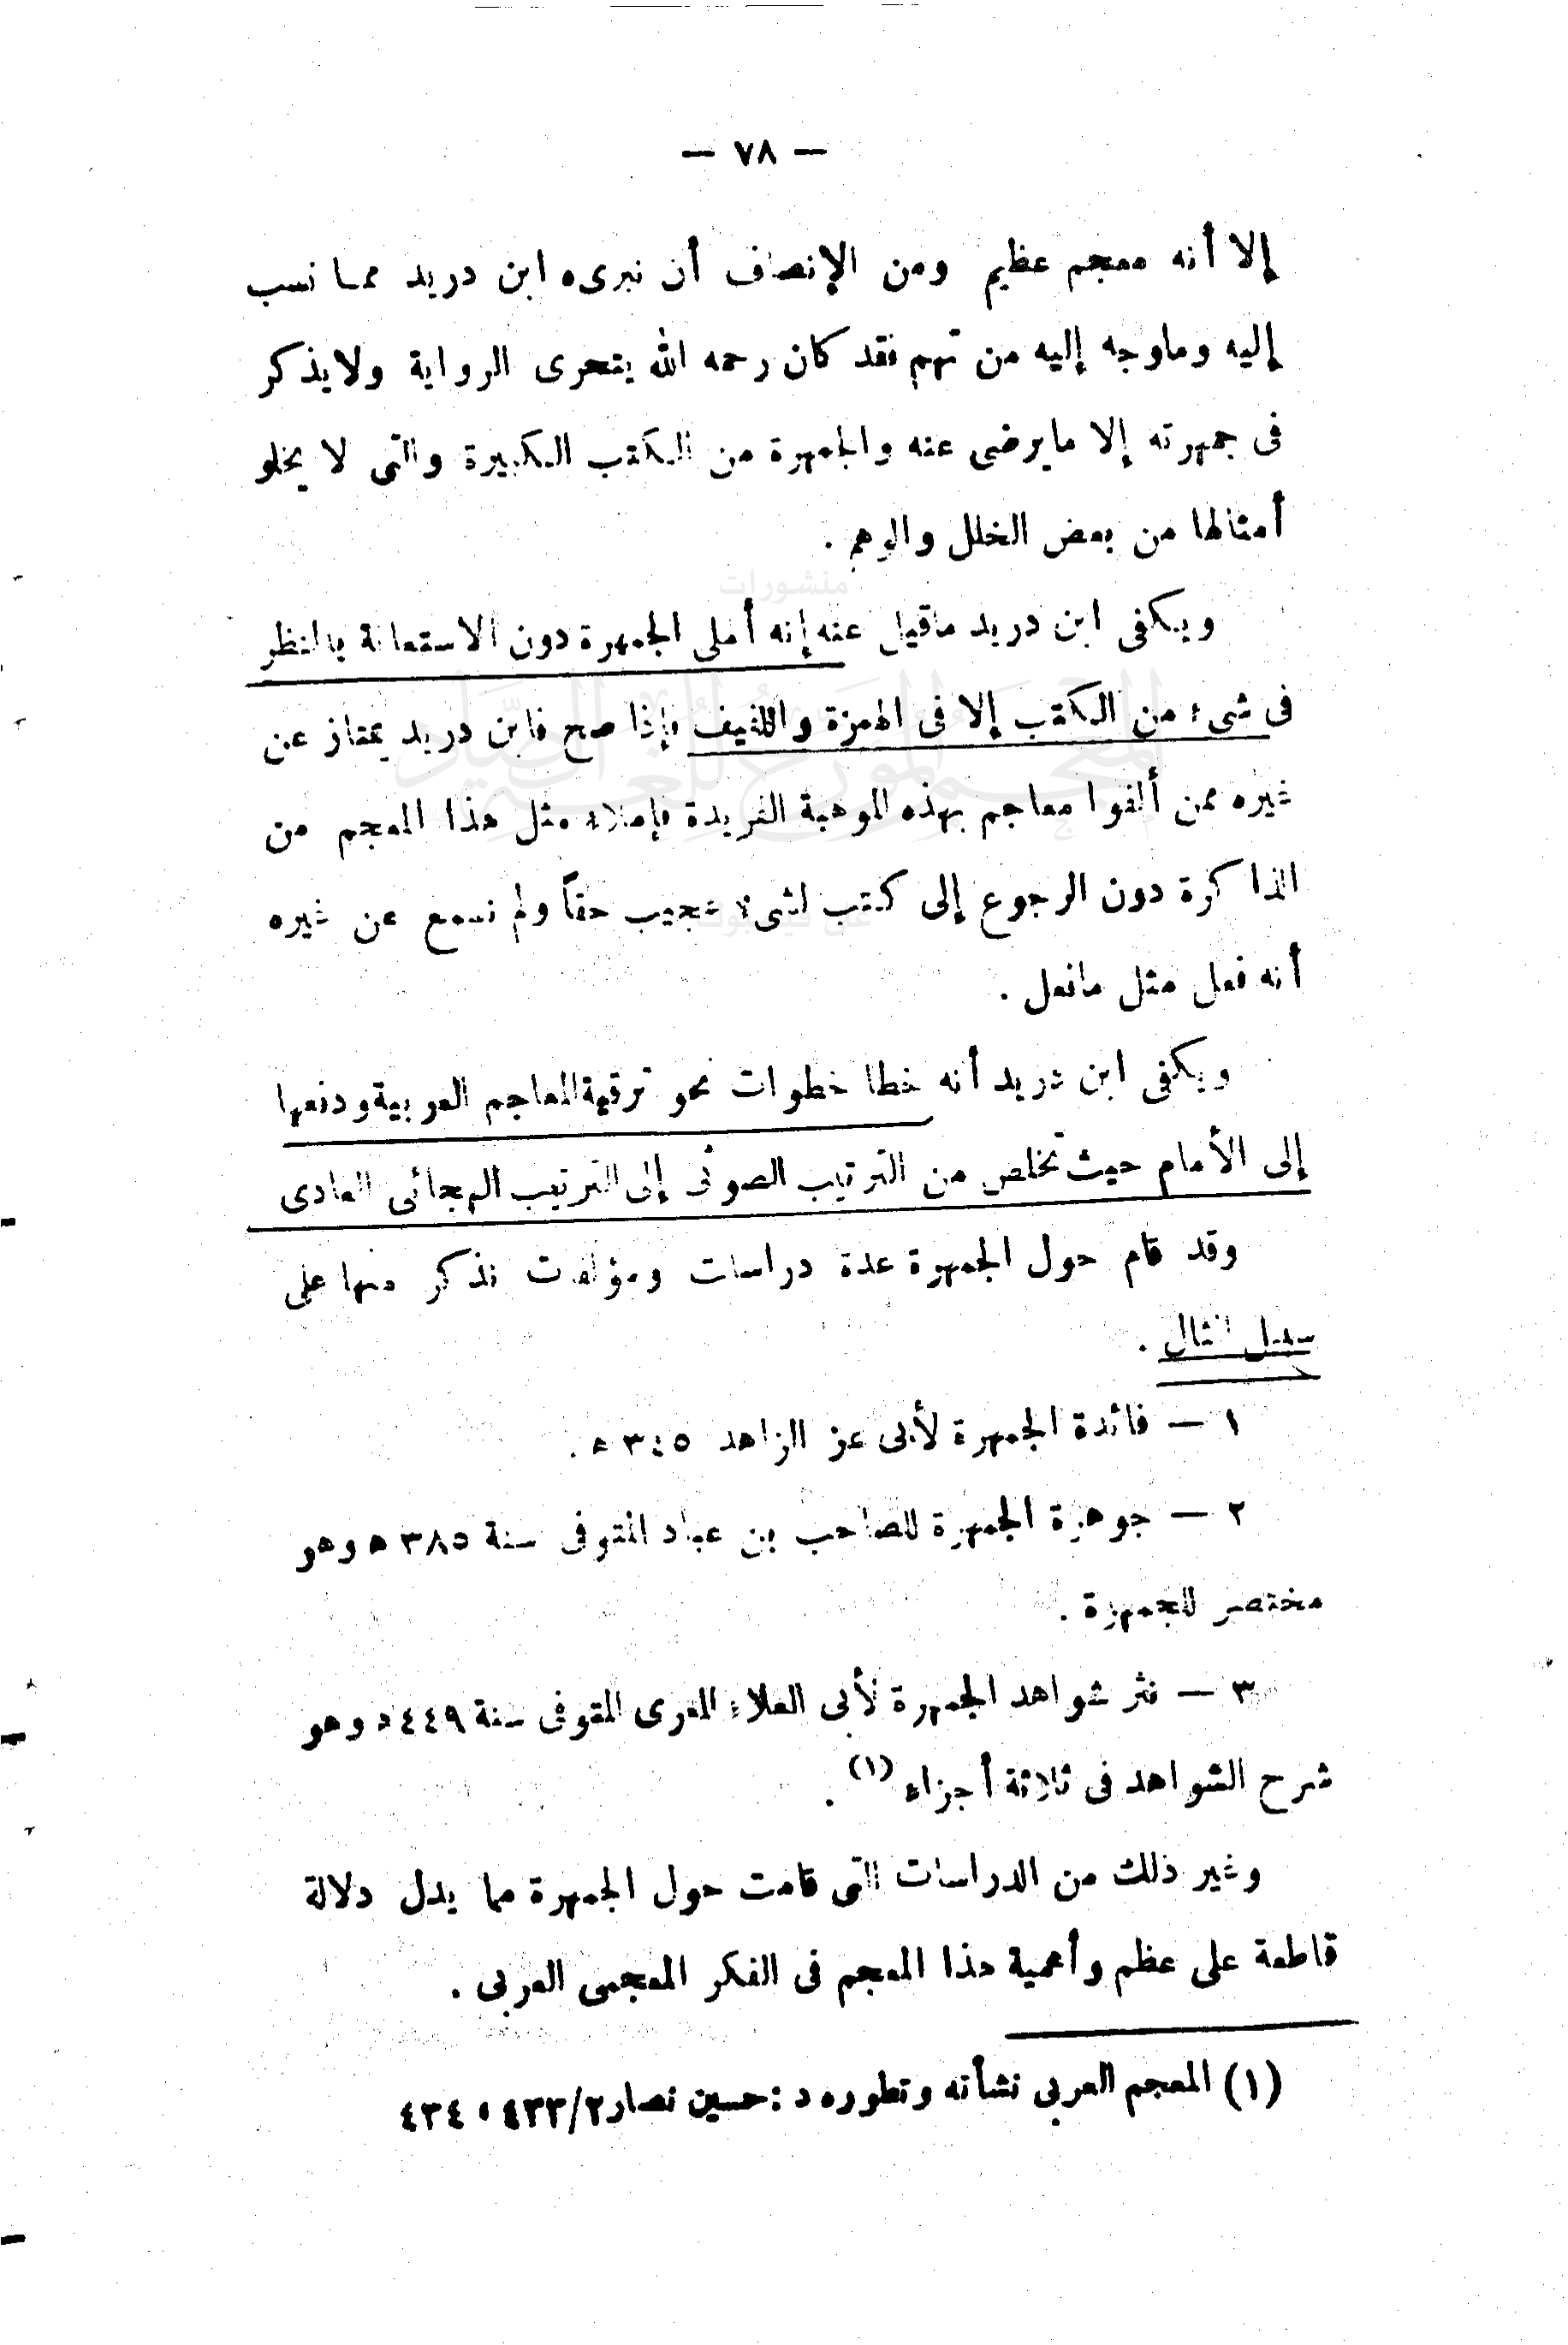 — ٧٨ —
إلا أنه معجم عظيم ومن الإنصاف أن نبرىء ابن دريد مما نسب
إليه وماوجه إليه من تهم فقد كان رحمه الله يتحرى الرواية ولايذكر
فى جمهرته إلا مايرضى عنه والجمهرة من الكتب الكبيرة والتى لا يخلو
أمثالها من بعض الخلل والوهم .
ويكفى ابن دريد ماقيل عنه إنه أملى الجمهرة دون الاستعانة بالنظر
فى شىء من الكتب إلا فى الهمزة واللفيف فإذا صح فابن دريد يمتاز عن
غيره ممن ألفوا معاجم بهذه الموهبة الفريدة فإملاء مثل هذا المعجم من
الذاكرة دون الرجوع إلى كتب لشىء عجيب حقاً ولم نسمع عن غيره
أنه فعل مثل مافعل .
ويكفى ابن دريد أنه خطا خطوات نحو ترقية المعاجم العربية ودفعها
إلى الأمام حيث تخلص من الترتيب الصوتى إلى الترتيب الهجائى العادى
وقد قام حول الجمهرة عدة دراسات ومؤلفات نذكر منها على
سبيل المثال .
١ — فائدة الجمهرة لأبى عز الزاهد ٣٤٥ ه .
٢ — جوهرة الجمهرة للصاحب بن عباد المتوفى سنة ٣٨٥ ه وهو
مختصر للجمهرة .
٣ — نثر شواهد الجمهرة لأبى العلاء المعرى المتوفى سنة ٤٤٩ ه وهو
شرح الشواهد فى ثلاثة أجزاء (١) .
وغير ذلك من الدراسات التى قامت حول الجمهرة مما يدل دلالة
قاطعة على عظم وأهمية هذا المعجم فى الفكر المعجمى العربى .
(١) المعجم العربى نشأته وتطوره د : حسين نصار ٤٣٣/٢ ، ٤٣٤